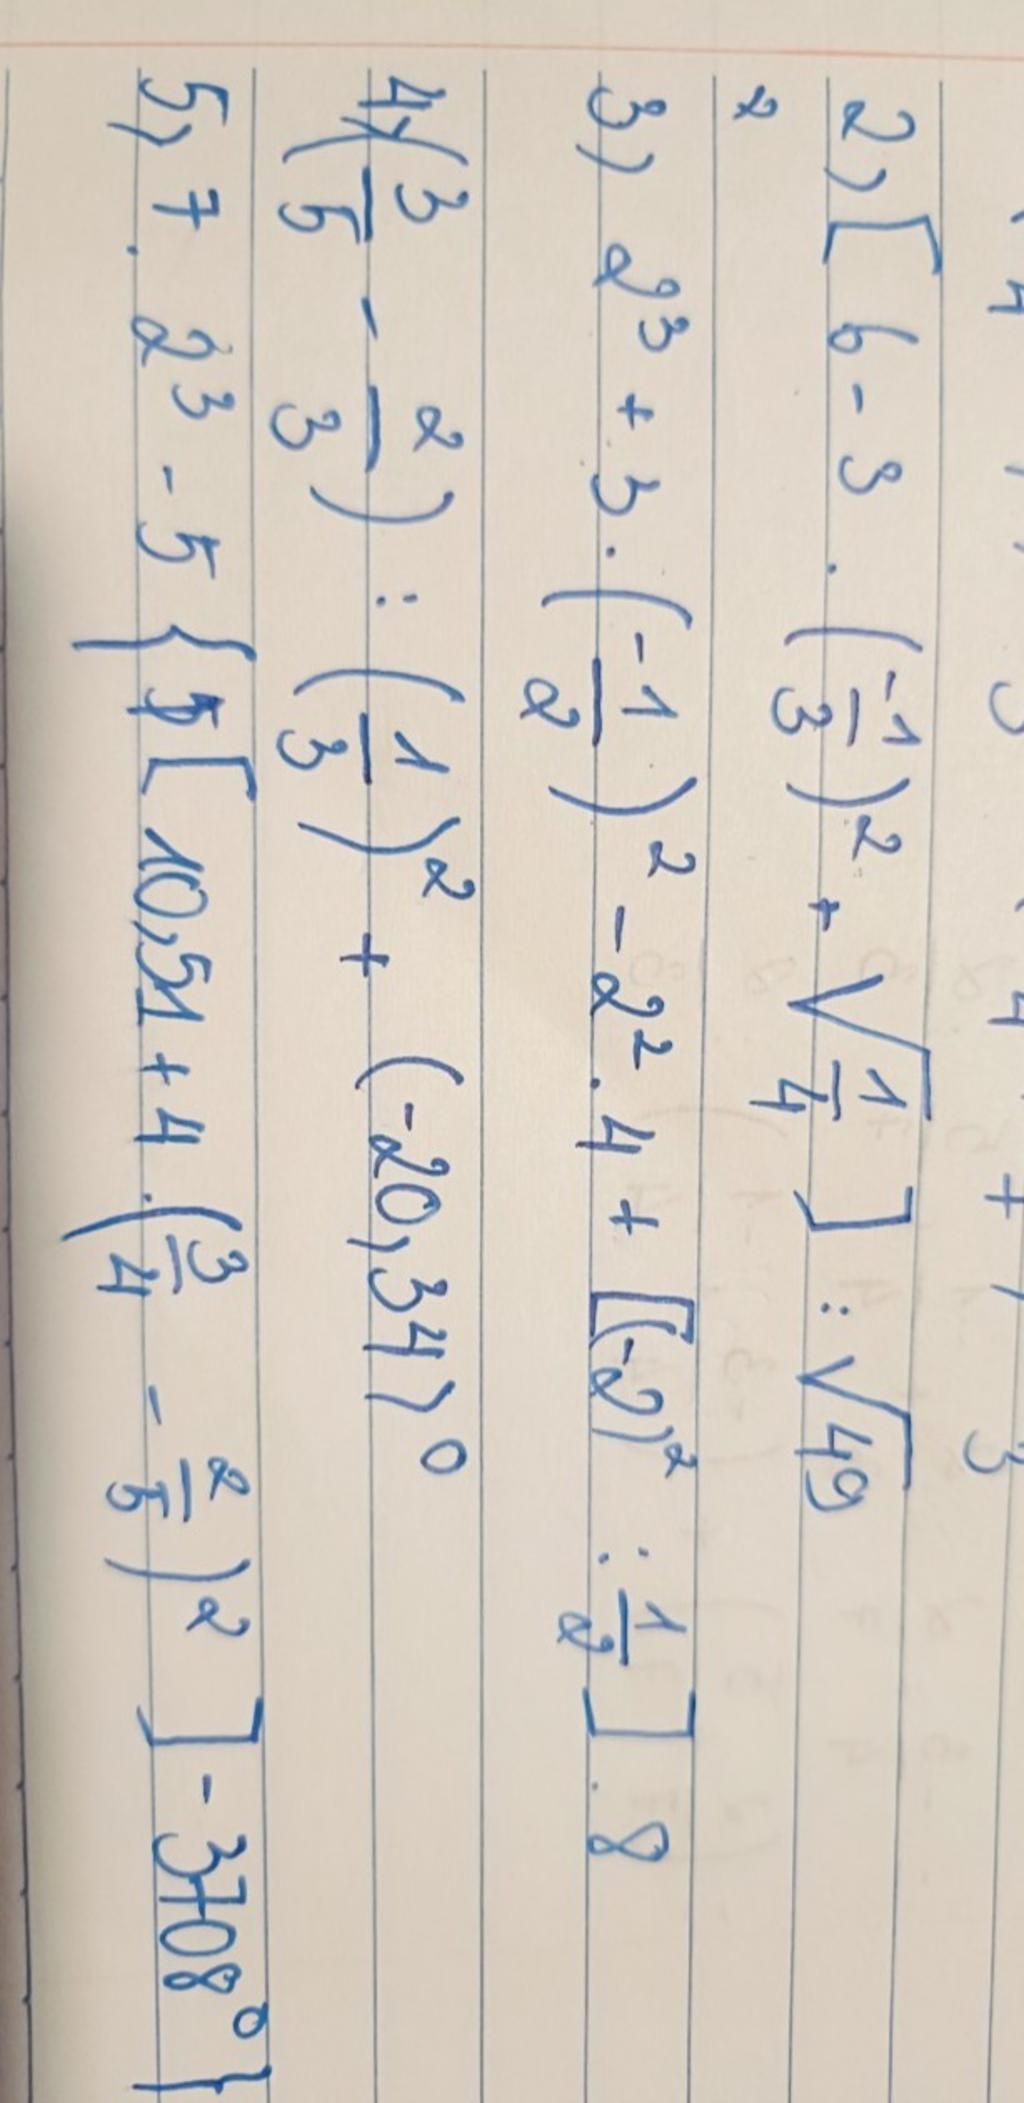 2) [ 6 - 3 . (-1/3)² + √(1/4) ] : √49
3) 2³ + 3 . (-1/2)² - 2² . 4 + [(-2)² : 1/2] . 8
4) (3/5 - 2/3) : (1/3)² + (-20,34)⁰
5) 7 . 2³ - 5 { [ 10,51 + 4 . (3/4 - 2/5)² ] - 3708⁰ }